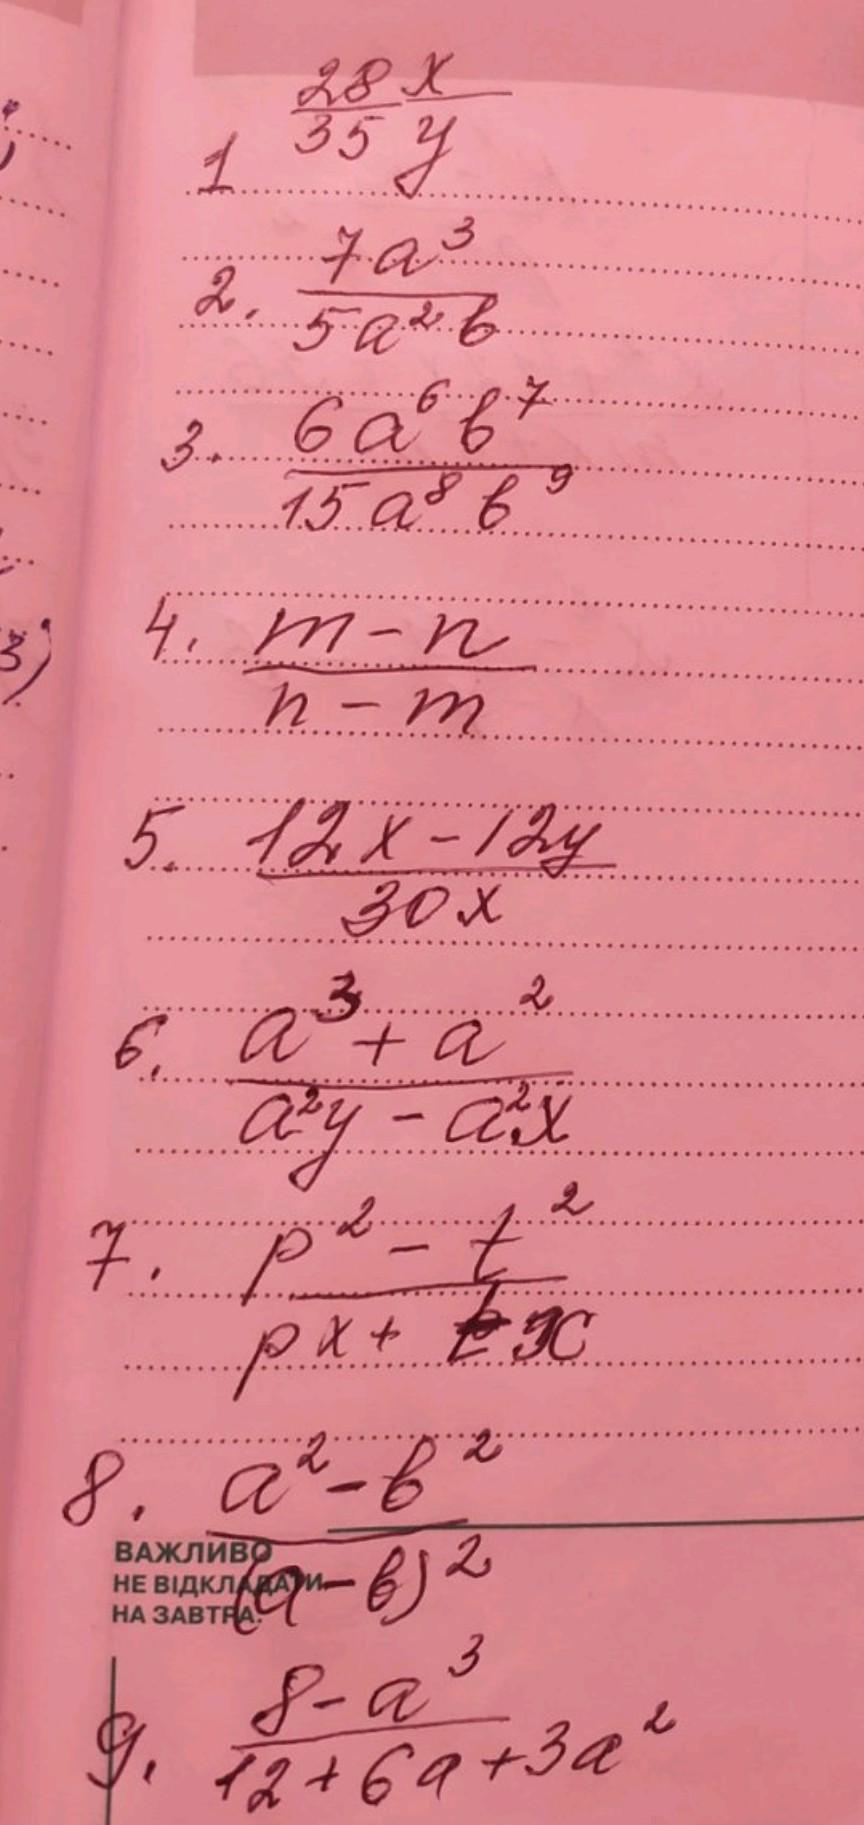 1 28x / 35y
2. 7a³ / 5a²b
3. 6a⁶b⁷ / 15a⁸b⁹
4. m-n / n-m
5. 12x-12y / 30x
6. a³+a² / a²y-a²x
7. p²-t² / px+tx
8. a²-b² / (a-b)²
ВАЖЛИВО
НЕ ВІДКЛАДАТИ
НА ЗАВТРА:
9. 8-a³ / 12+6a+3a²
3)